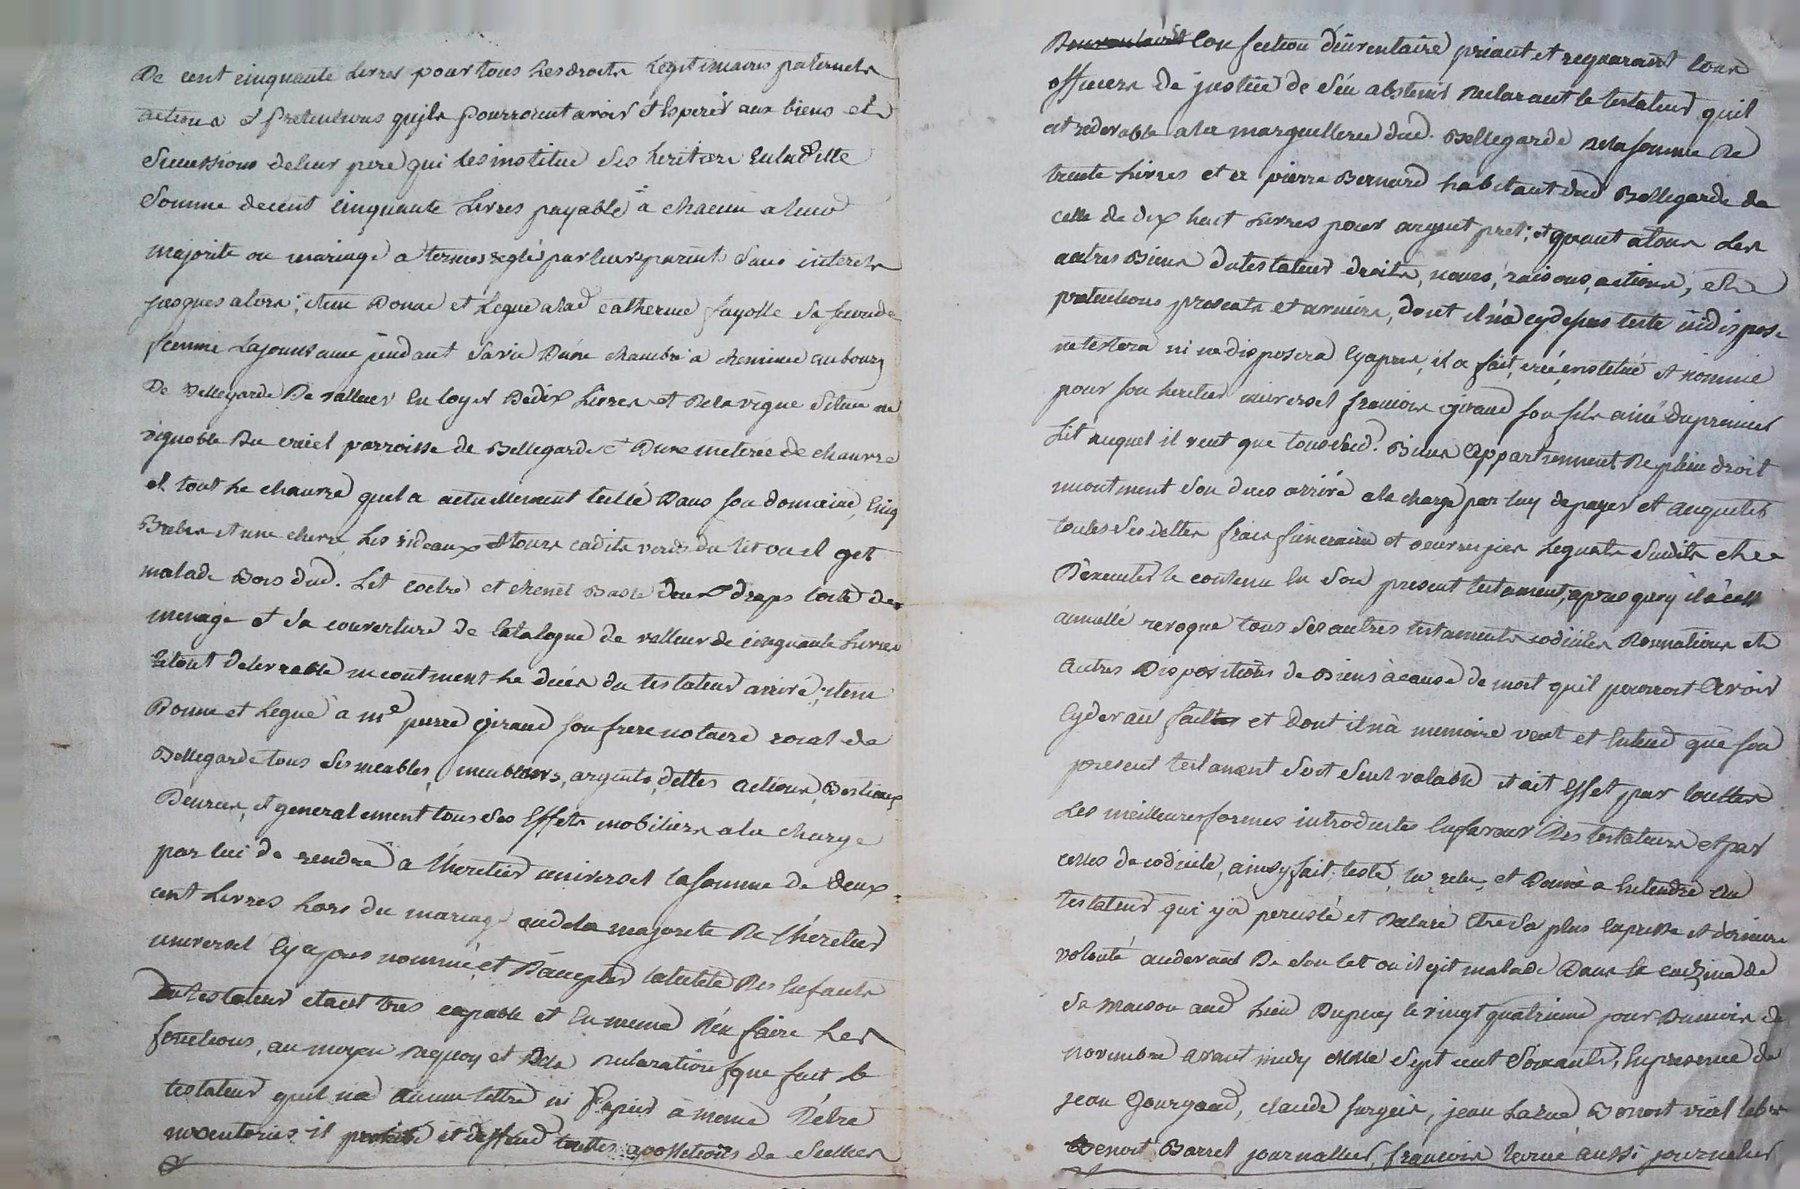 De cent cinquante livres pour tous les droits legitimaires paternels
actions et pretentions quils pourroient avoir et esperer aux biens et
successions de leur pere qui les institue ses heritiers en lad.e
somme de cent cinquante livres payable à chacun a leur
majorite ou mariage a termes reglé par leurs parents sans interets
jusques alors; item Donne et Legue a lad. catherine fayolle sa seconde
femme la jouissance pendant sa vie D'une chambre a cheminee au bourg
De Bellegarde De valleur en loyer De dix livres et De la vigne situee au
vignoble Du parroisse de Bellegarde et D'une meterée de chanvre
et tout le chanvre quel a actuellement teillé Dans son domaine, cinq
Brebis et une chevre, les rideaux et tours cadits verds du lit ou il git
malade Bois dud. Lit coetre et chevet Basle deux draps toile de
menage et sa couverture de Catalogne de valleur de cinquante livres
le tout delivrable incontinent le décés du testateur arrivé; item
Donne et Legue à me pierre Giraud son frere notaire roial de
Bellegarde tous ses meubles, argents, dettes actions, Bestiaux
Denrées, et generalement tous ses Effets mobiliers a la charge
par lui de rendre à l'heretier universel la somme de deux
cent Livres hors du mariage oude la majorete De l'heretier
universel cyapres nommé, et D'accepter la tutele Des Enfants
Du testateur etant tres capable et en meme D'en faire les
fonctions, au moyen Dequoy et De la Declaration que fait le
testateur quil n'a aucun tittre ni Papier à meme D'etre
inventories il et deffend touttes apositions de scellés
confection d'inventaire priant et requerant tous
officiers de justice de s'en abstenir Declarant le testateur quil
est redevable a la marguillerie dud. Bellegarde de la somme De
trente livres et a pierre Bernard habitant dud Bellegarde de
celle de dix huit livres pour argent pret; et quant a tous les
autres Biens du testateur droits, noms, raisons, actions, et
pretentions presents et avenirs, dont il n'a cy depus testé ni dispose
ne testera ni ne disposera cyapres, il a fait, creé, institué et nommé
pour son heritier universel francois Giraud son fils ainé du premier
Lit auquel il veut que tous sesd. Biens appartiennent De plein droit
incontinent son deces arrivé a la charge par luy de payer et acquiter
toutes ses dettes frais funeraires et oeuvres pies legats susdits et
D'executer le contenu en son present testament, apres quoy il a cassé
annullé revoque tous ses autres testaments codiciles Donnations et
autres Dispositions de Biens à cause de mort quil pourroit avoir
cydevant faites et dont il n'à memoire veut et entend que son
present testament soit seul valable et ait Effet par touttes
Les meilleures formes introduites en faveur Des testateurs et par
celles de codicile, ainsy fait, testé, lu, relu, et Donné a entendre au
testateur qui y a persisté et Declaré Etre sa plus expresse et derniere
volonté audevant De son lit ou il git malade Dans la cuisine de
sa maison aud. lieu Dupuy le vingt quatrieme jour Du mois de
novembre avant midy Mille sept cent soixante, En presence de
jean Gourgaud, claude fargeix, jean Larue, Benoit vial
Benoit Barret journallier, francois aussi journalier